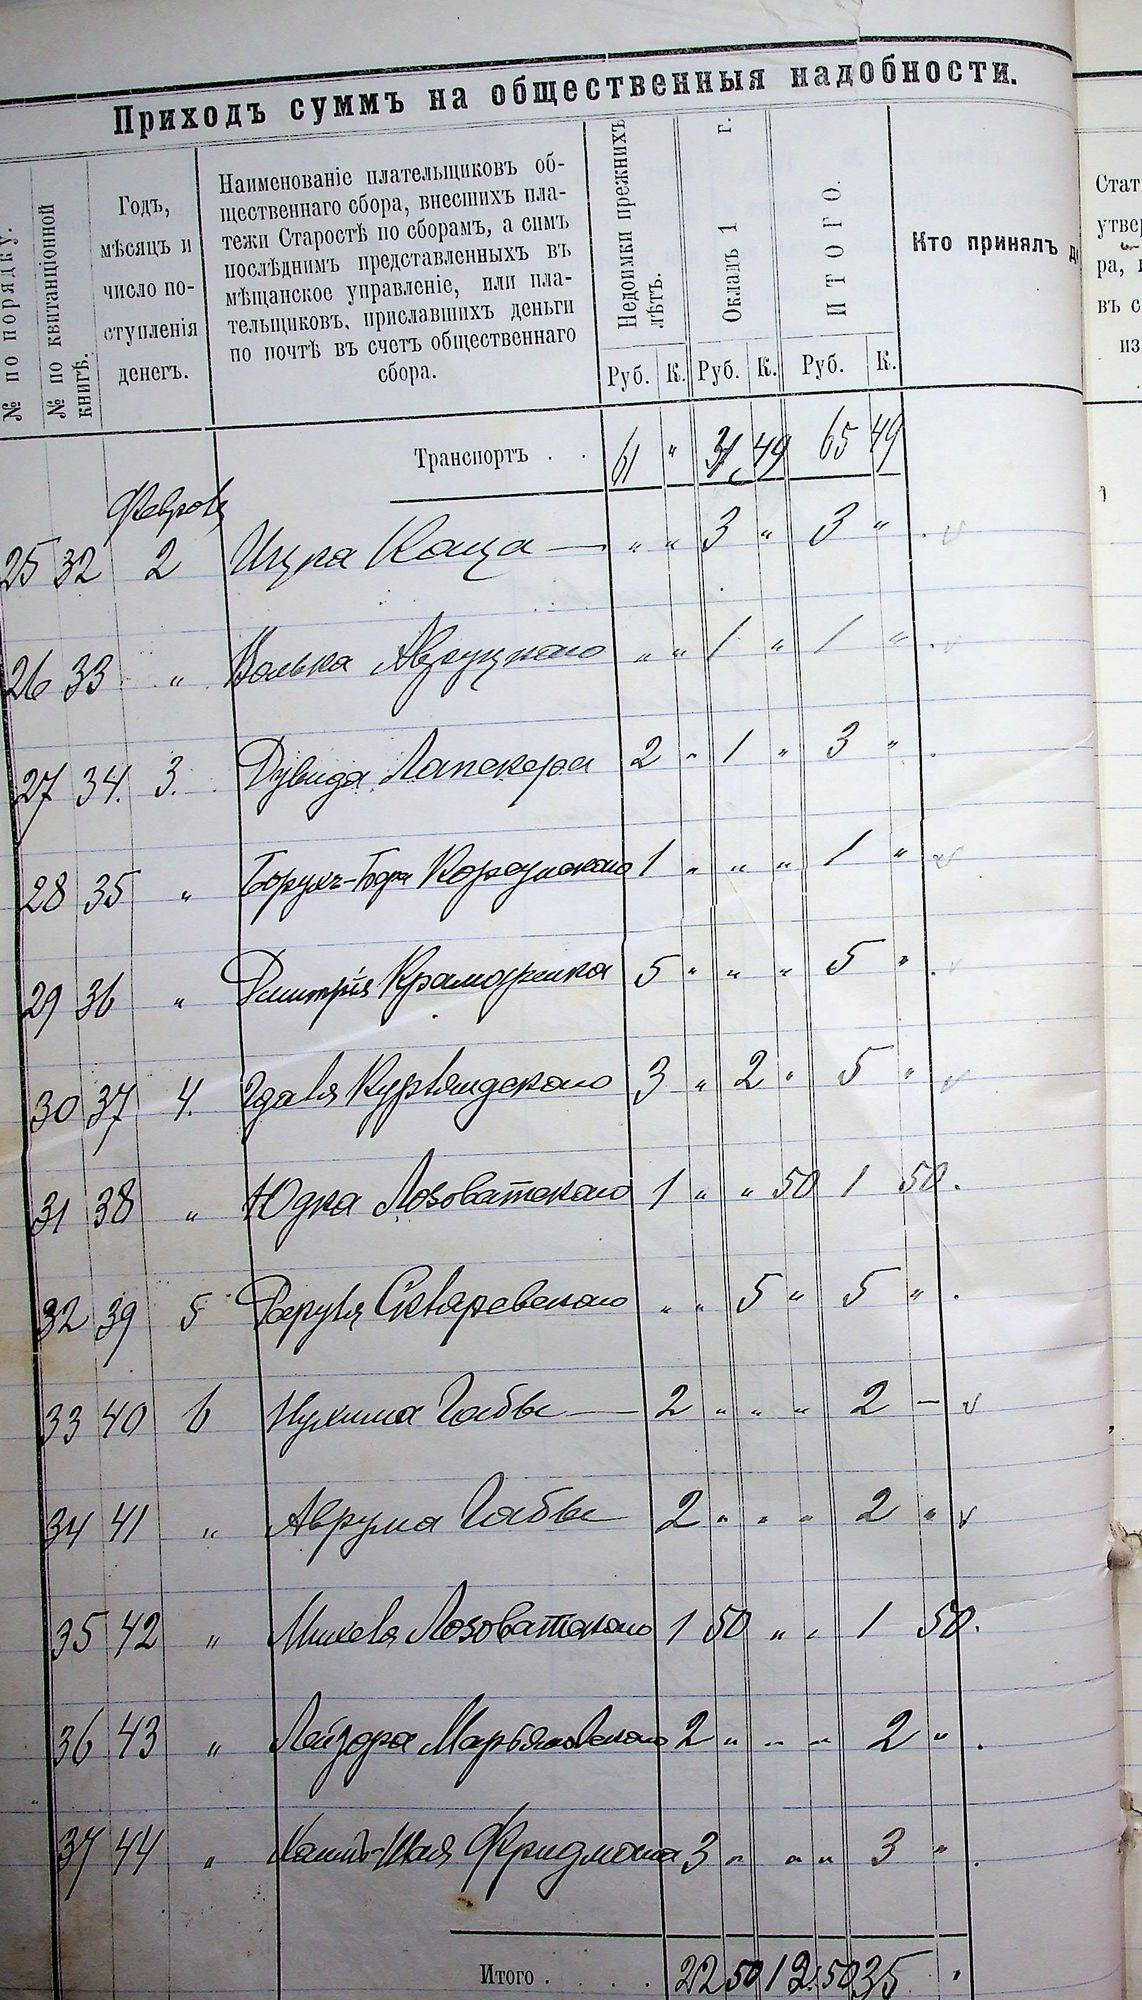 Приходъ суммъ на общественныя надобности.
№ по порядку.
№ по квитанціонной книгѣ.
Годъ,
мѣсяцъ и
число по-
ступленія
денегъ.
Наименованіе плательщиковъ об-
щественнаго сбора, внесшихъ пла-
тежи Старостѣ по сборамъ, а симъ
послѣднимъ представленныхъ въ
мѣщанское управленіе, или пла-
тельщиковъ, приславшихъ деньги
по почтѣ въ счетъ общественнаго
сбора.
Недоимки прежнихъ лѣтъ.
Окладъ 1 г.
ИТОГО.
Кто принялъ
Руб. К. Руб. К. Руб. К.
Транспортъ . . 61 " 49 65 49
25 32 2 Ицка Каца — " " 3 " 3 "
26 33 " Волька " " 1 " 1 "
27 34. 3. Дувида Лапскера 2 " 1 " 3 "
28 35 " Борухъ-Бера 1 " " " 1 "
29 36 " Дмитрія Крамаренка 5 " " " 5 "
30 37 4. Гдаля Курляндскаго 3 " 2 " 5 "
31 38 " Юдка Лозоватскаго 1 " " 50 1 50.
32 39 5 " " 5 " 5 "
33 40 6 Нухима Габбе — 2 " " " 2 —
34 41 " Аврума Габбе 2 " " " 2 "
35 42 " Михеля Лозоватскаго 1 50 " " 1 50.
36 43 " Лейзора Марьяновскаго 2 " " " 2 "
37 44 " Хаимъ-Шая Фридмана 3 " " " 3 "
Итого . . . . 22 50 12 50 35 "
Стат
утвер
ра,
въ с
из